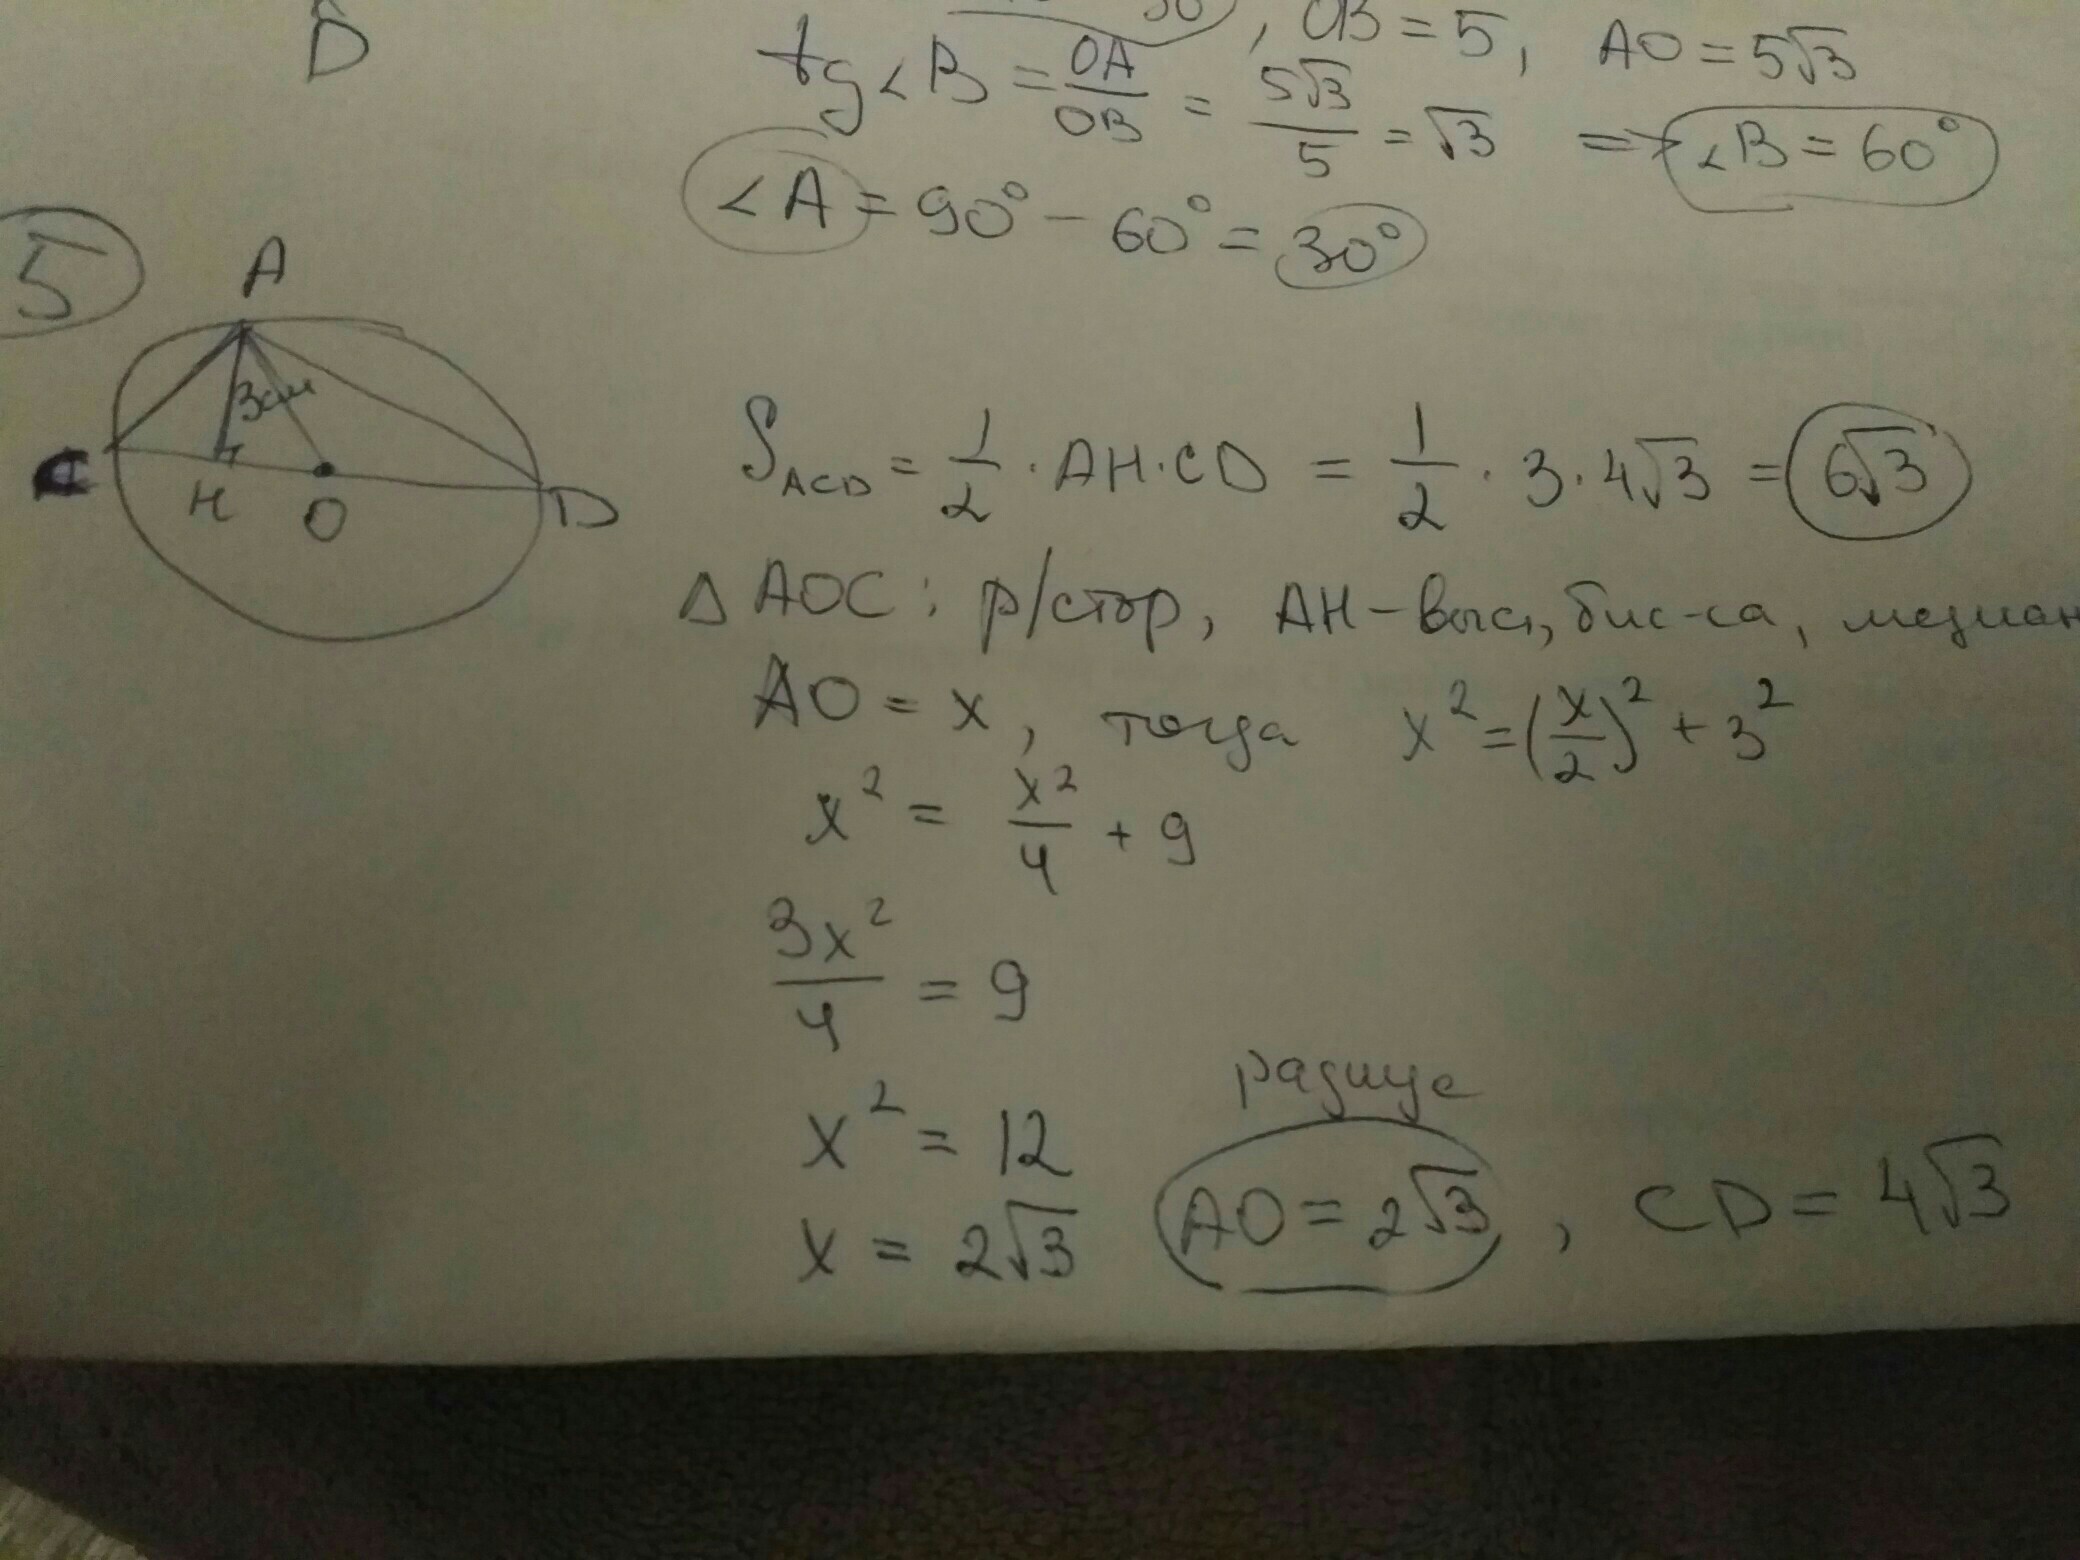 B
, OB = 5, AO = 5√3
tg∠B = OA/OB = 5√3/5 = √3 => ∠B = 60°
∠A = 90° − 60° = 30°
5
A
3см
C H O D
S_ACD = 1/2 · AH · CD = 1/2 · 3 · 4√3 = 6√3
△ AOC: р/стор, AH – выс, бис-са, медиан
AO = x, тогда x² = (x/2)² + 3²
x² = x²/4 + 9
3x²/4 = 9
x² = 12
радиус
x = 2√3 AO = 2√3, CD = 4√3